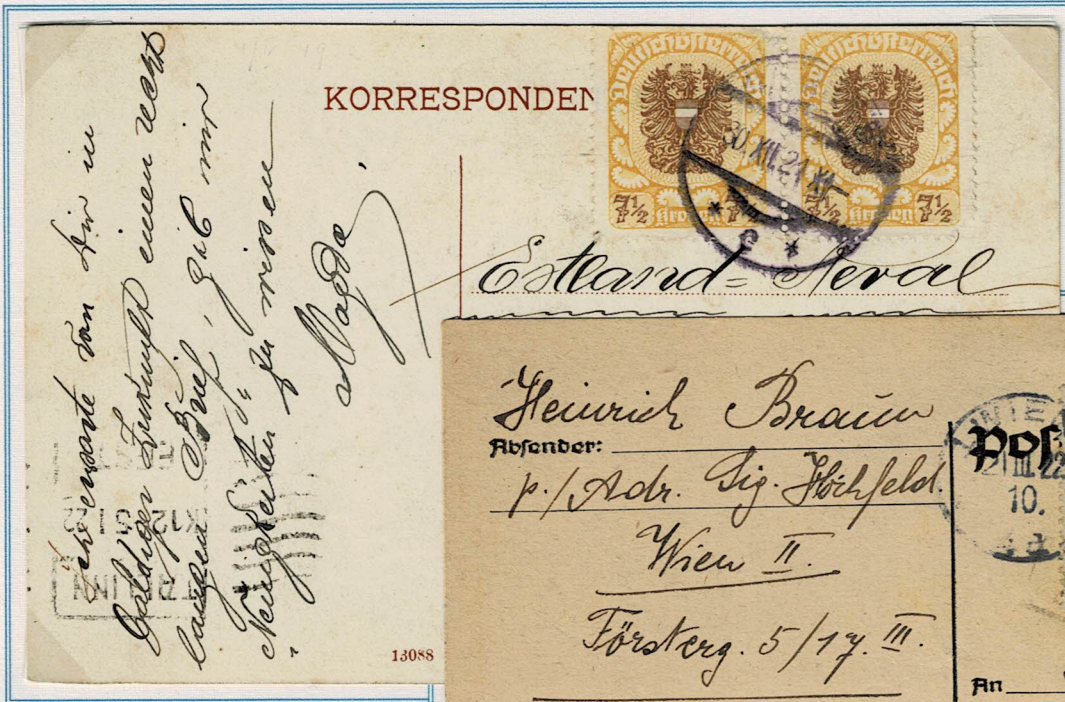 KORRESPONDEN
Deutschösterreich
Deutschösterreich
7½ Kronen 7½
7½ Kronen 7½
30.XII.21
Estland = Reval
Ich erwarte von Dir in
baldiger Zukunft einen recht
langen Brief, gib mir
Neuigkeiten zu wissen
Magda
TALLINN
13088
Heinrich Braun
Absender:
p./Adr. Sig. Hochfeld.
Wien II.
Försterg. 5/17. III.
WIEN
III.22
10.
Pos
An